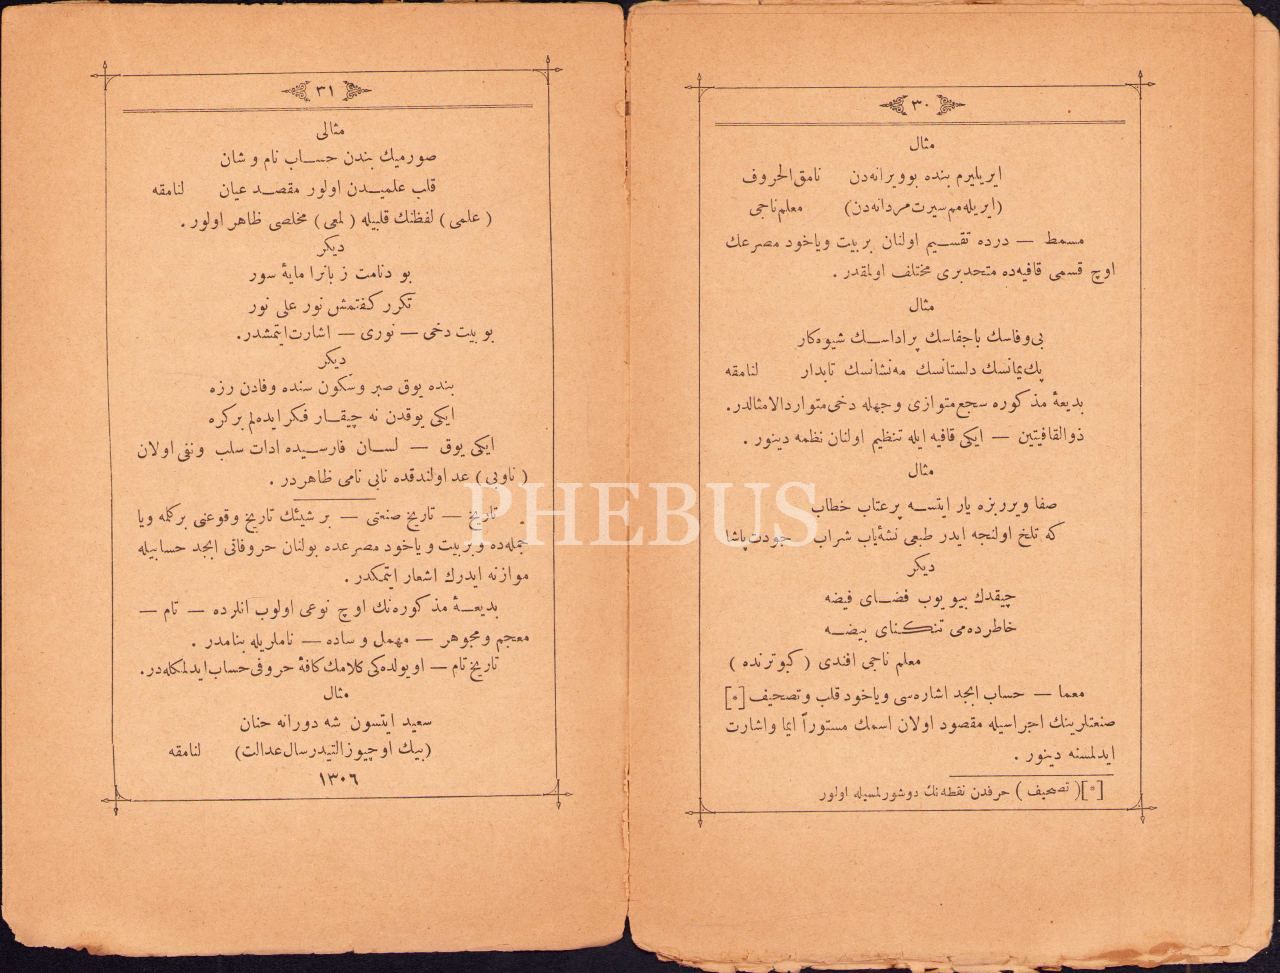 ٣٠
مثال
ايريليرم بنده بو ويرانه‌دن نامق الحروف
(ايريله‌مم سيرت مردانه‌دن) معلم ناجى
مسمط — درده تقسيم اولنان بر بيت وياخود مصرعك
اوچ قسمى قافيه‌ده متحد برى مختلف اولمقدر .
مثال
بى وفاسك باجفاسك پر اداسك شيوه‌كار
پك يمانسك دلستانسك مه‌نشانسك تابدار لنامقه
بديعهٔ مذكوره سجع متوازى وجهله دخى متوارد الامثالدر.
ذوالقافيتين — ايكى قافيه ايله تنظيم اولنان نظمه دينور .
مثال
صفا ويرربزه يار ايتسه پر عتاب خطاب
كه تلخ اولنجه ايدر طبعى نشئه‌ياب شراب جودت پاشا
ديكر
چيقدك بيويوب فضاى فيضه
خاطرده‌مى تنكناى بيضه
معلم ناجى افندى (كبوترنده)
معما — حساب ابجد اشاره‌سى وياخود قلب وتصحيف [*]
صنعتلرينك اجراسيله مقصود اولان اسمك مستوراً ايما واشارت
ايدلمسنه دينور .
[*] (تصحيف) حرفدن نقطه‌نك دوشورلمسيله اولور
٣١
مثالى
صورميك بندن حساب نام و شان
قلب علميدن اولور مقصد عيان لنامقه
(علمى) لفظنك قلبيله (لمعى) مخلصى ظاهر اولور .
ديكر
بو دنامت ز بانرا مايهٔ سور
تكرر كفتمش نور على نور
بو بيت دخى — نورى — اشارت ايتمشدر.
ديكر
بنده يوق صبر وسكون سنده وفادن رزه
ايكى يوقدن نه چيقار فكر ايده‌لم بركره
ايكى يوق — لسان فارسيده ادات سلب ونفى اولان
(ناوبى) عد اولندقده نابى نامى ظاهردر .
تاريخ — تاريخ صنعتى — بر شيئك تاريخ وقوعنى بركلمه ويا
جمله‌ده وبر بيت وياخود مصرعده بولنان حروفاتى ابجد حسابيله
موازنه ايدرك اشعار ايتمكدر .
بديعهٔ مذكوره‌نك اوچ نوعى اولوب انلرده — تام —
معجم ومجوهر — مهمل و ساده — ناملريله بنامدر .
تاريخ تام — اويولده‌كى كلامك كافهٔ حروفى حساب ايدلمكله‌در.
مثال
سعيد ايتسون شه دورانه حنان
(بيك اوچيوز التيدر سال عدالت) لنامقه
١٣٠٦
PHEBUS